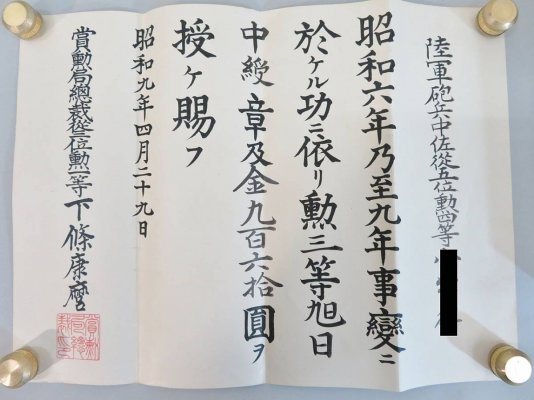 陸軍砲兵中佐從五位勲四等
昭和六年乃至九年事變ニ
於ケル功ニ依リ勲三等旭日
中綬章及金九百六拾圓ヲ
授ケ賜フ
昭和九年四月二十九日
賞勲局總裁從二位勲一等下條康麿